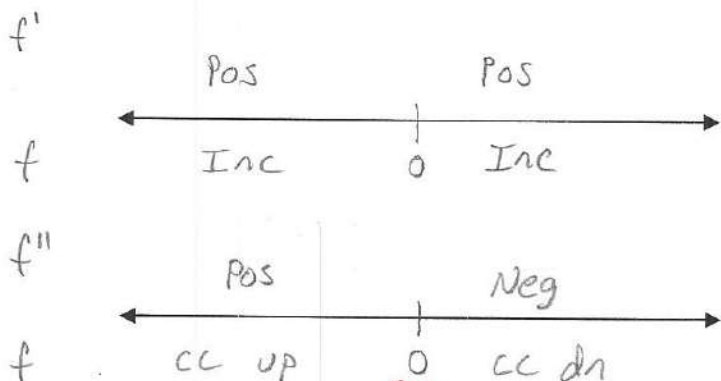 f'
Pos Pos
f Inc 0 Inc
f"
Pos Neg
f cc up 0 cc dn